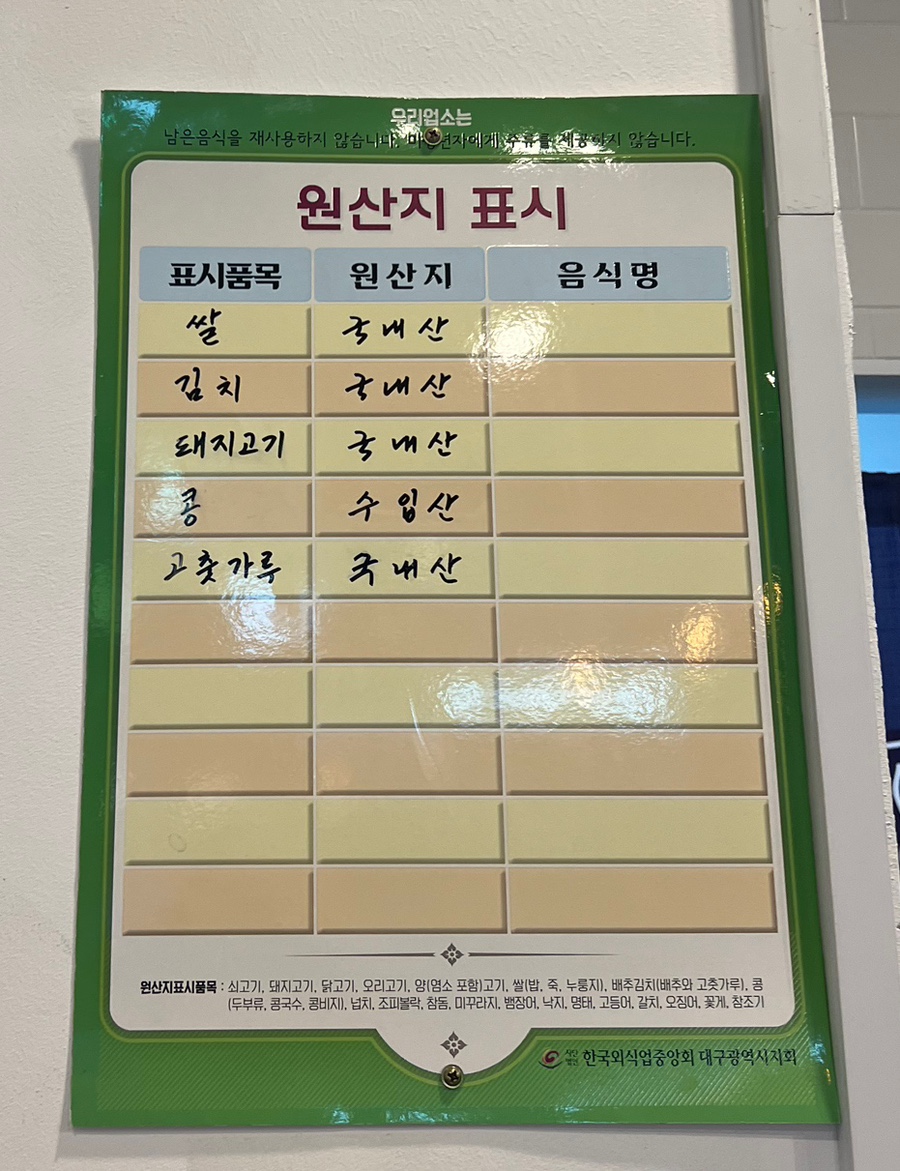 우리업소는
남은음식을 재사용하지 않습니다. 미성년자에게 주류를 제공하지 않습니다.
원산지 표시
표시품목 원산지 음식명
쌀 국내산
김치 국내산
돼지고기 국내산
콩 수입산
고춧가루 국내산
원산지표시품목 : 쇠고기, 돼지고기, 닭고기, 오리고기, 양(염소 포함)고기, 쌀(밥, 죽, 누룽지), 배추김치(배추와 고춧가루), 콩
(두부류, 콩국수, 콩비지), 넙치, 조피볼락, 참돔, 미꾸라지, 뱀장어, 낙지, 명태, 고등어, 갈치, 오징어, 꽃게, 참조기
사단법인 한국외식업중앙회 대구광역시지회